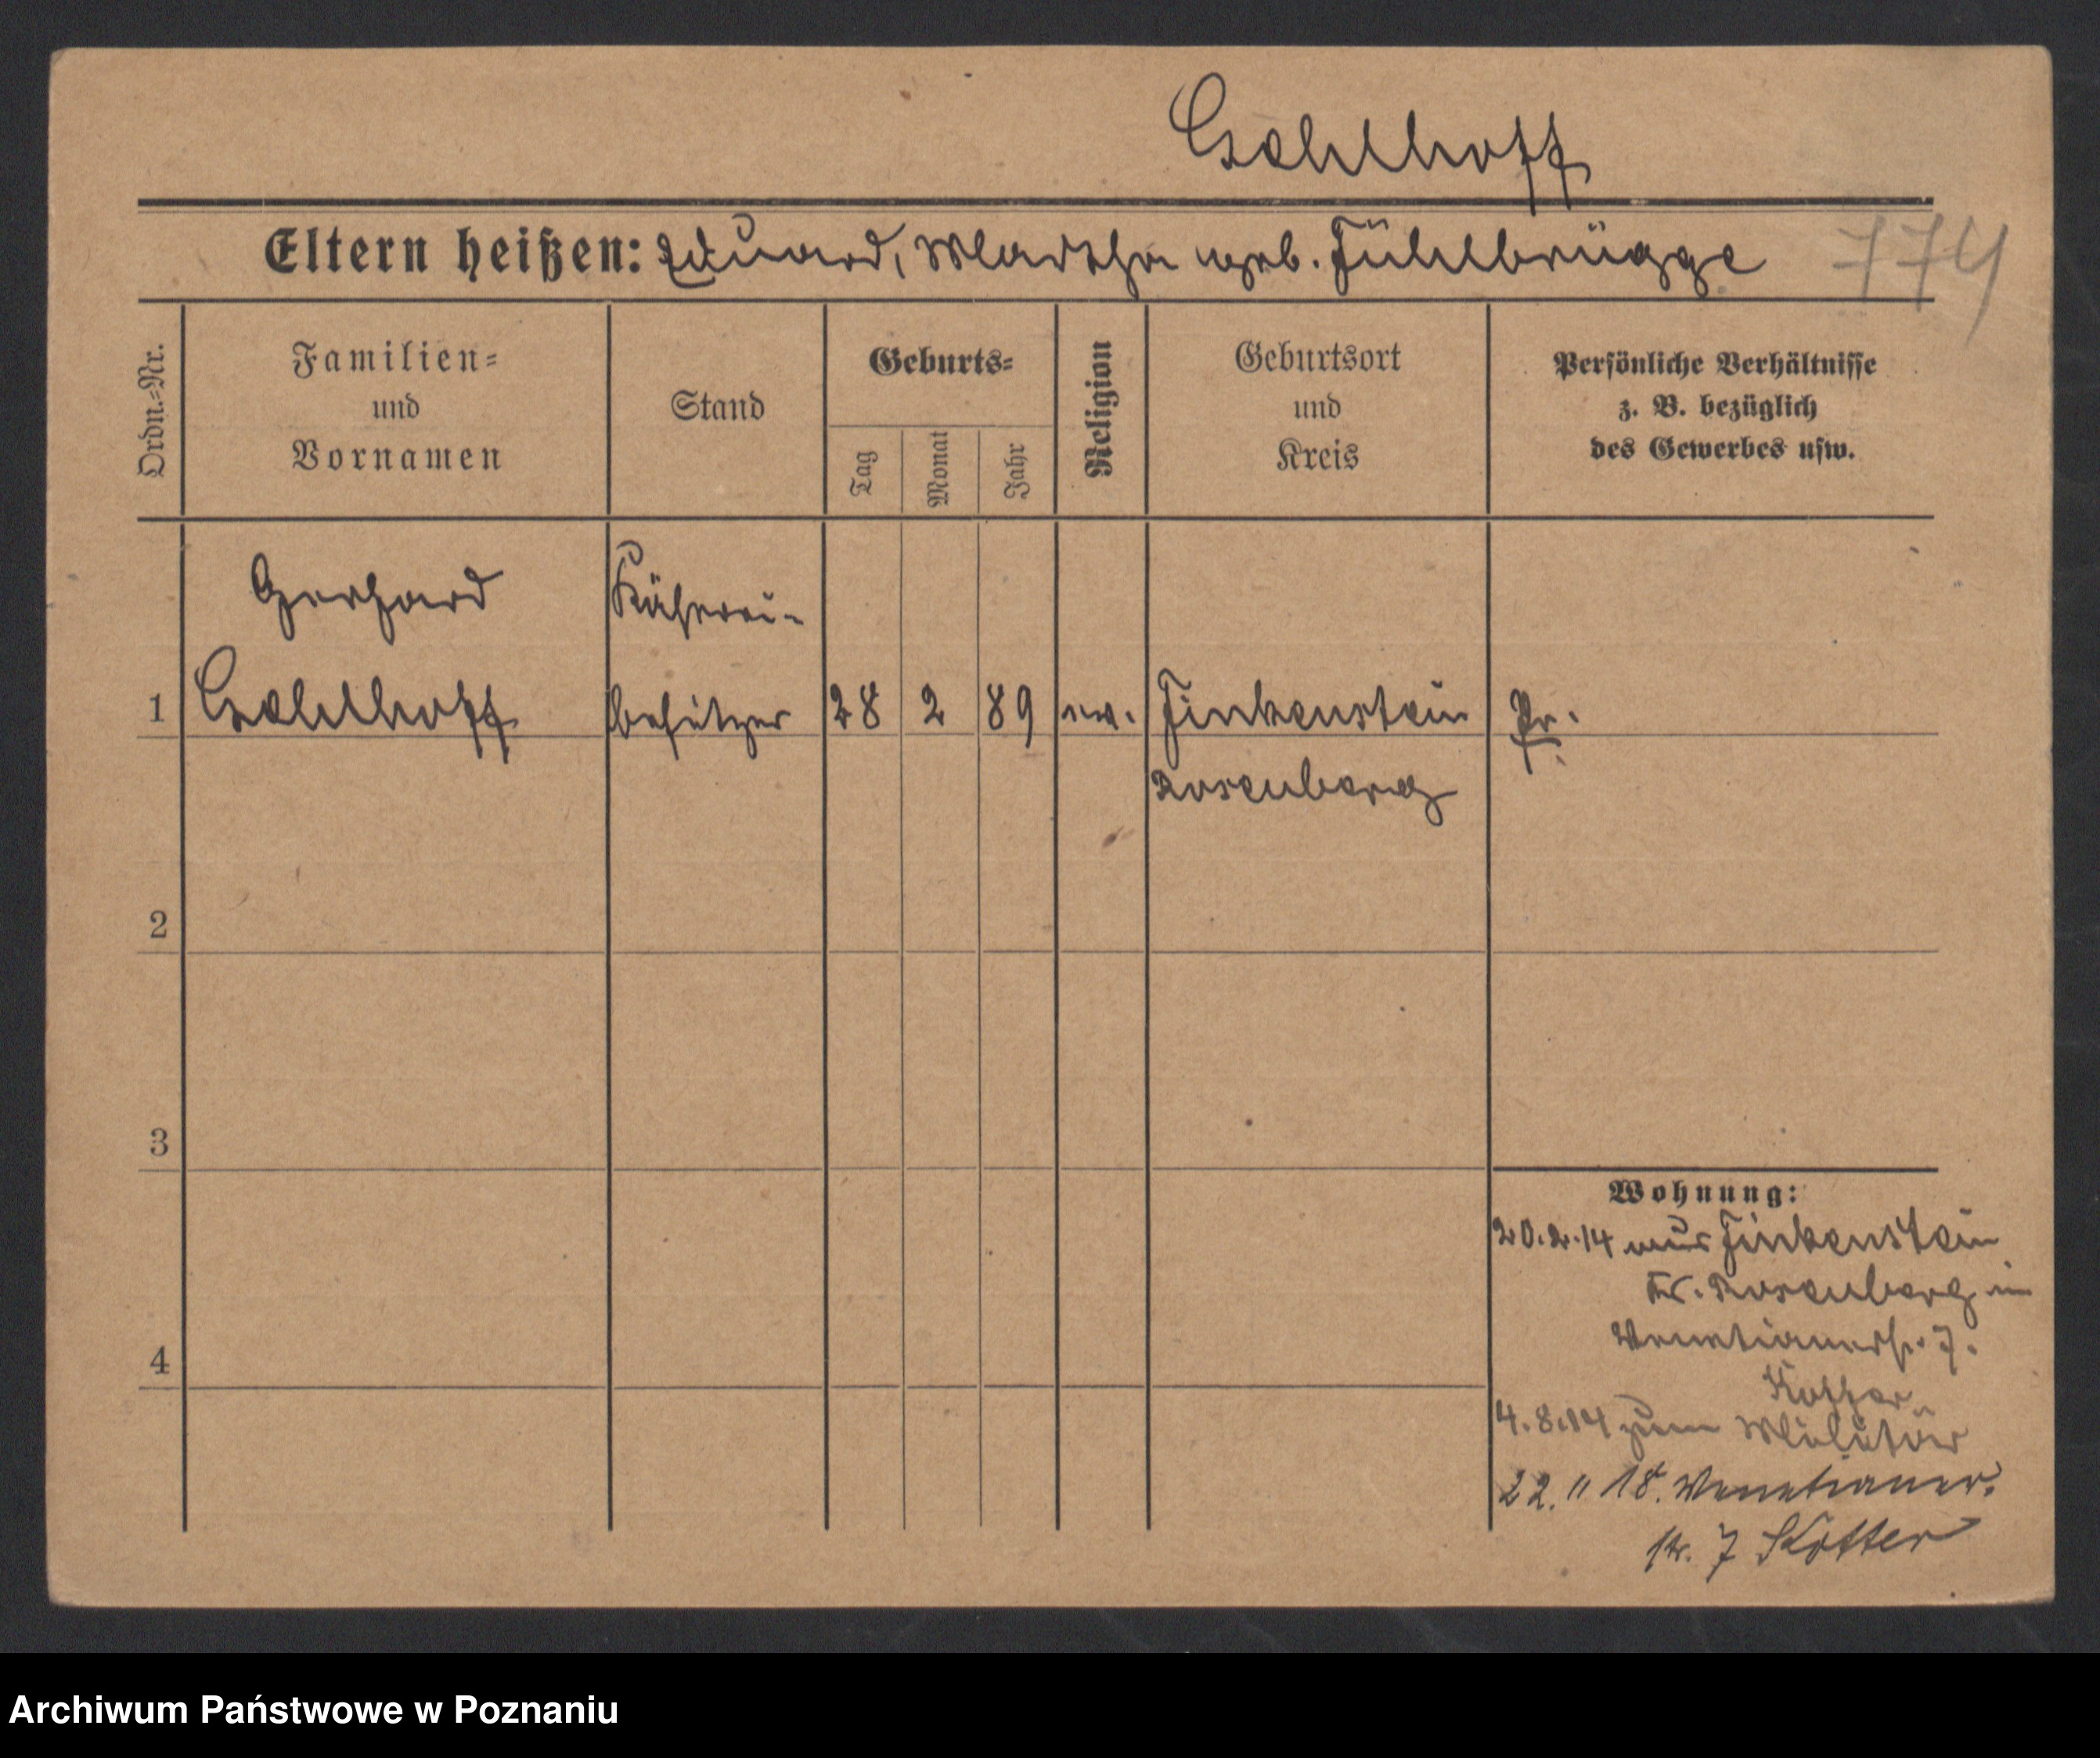 Gohlhoff
Eltern heißen: Eduard, Martha geb. Fühlbrügge 774
Ordn.-Nr.
Familien-
und
Vornamen
Stand
Geburts-
Tag
Monat
Jahr
Religion
Geburtsort
und
Kreis
Persönliche Verhältnisse
z. B. bezüglich
des Gewerbes usw.
Gerhard Käserei-
1 Gohlhoff besitzer 28 2 89 ev. Finkenstein Pr.
Rosenberg
2
3
4
Wohnung:
20.2.14 aus Finkenstein
Kr. Rosenberg in
Venetianerstr. 7.
Kotter
4.8.14 zum Militär
22. " 18. Venetianer-
str. 7 Kotter
Archiwum Państwowe w Poznaniu